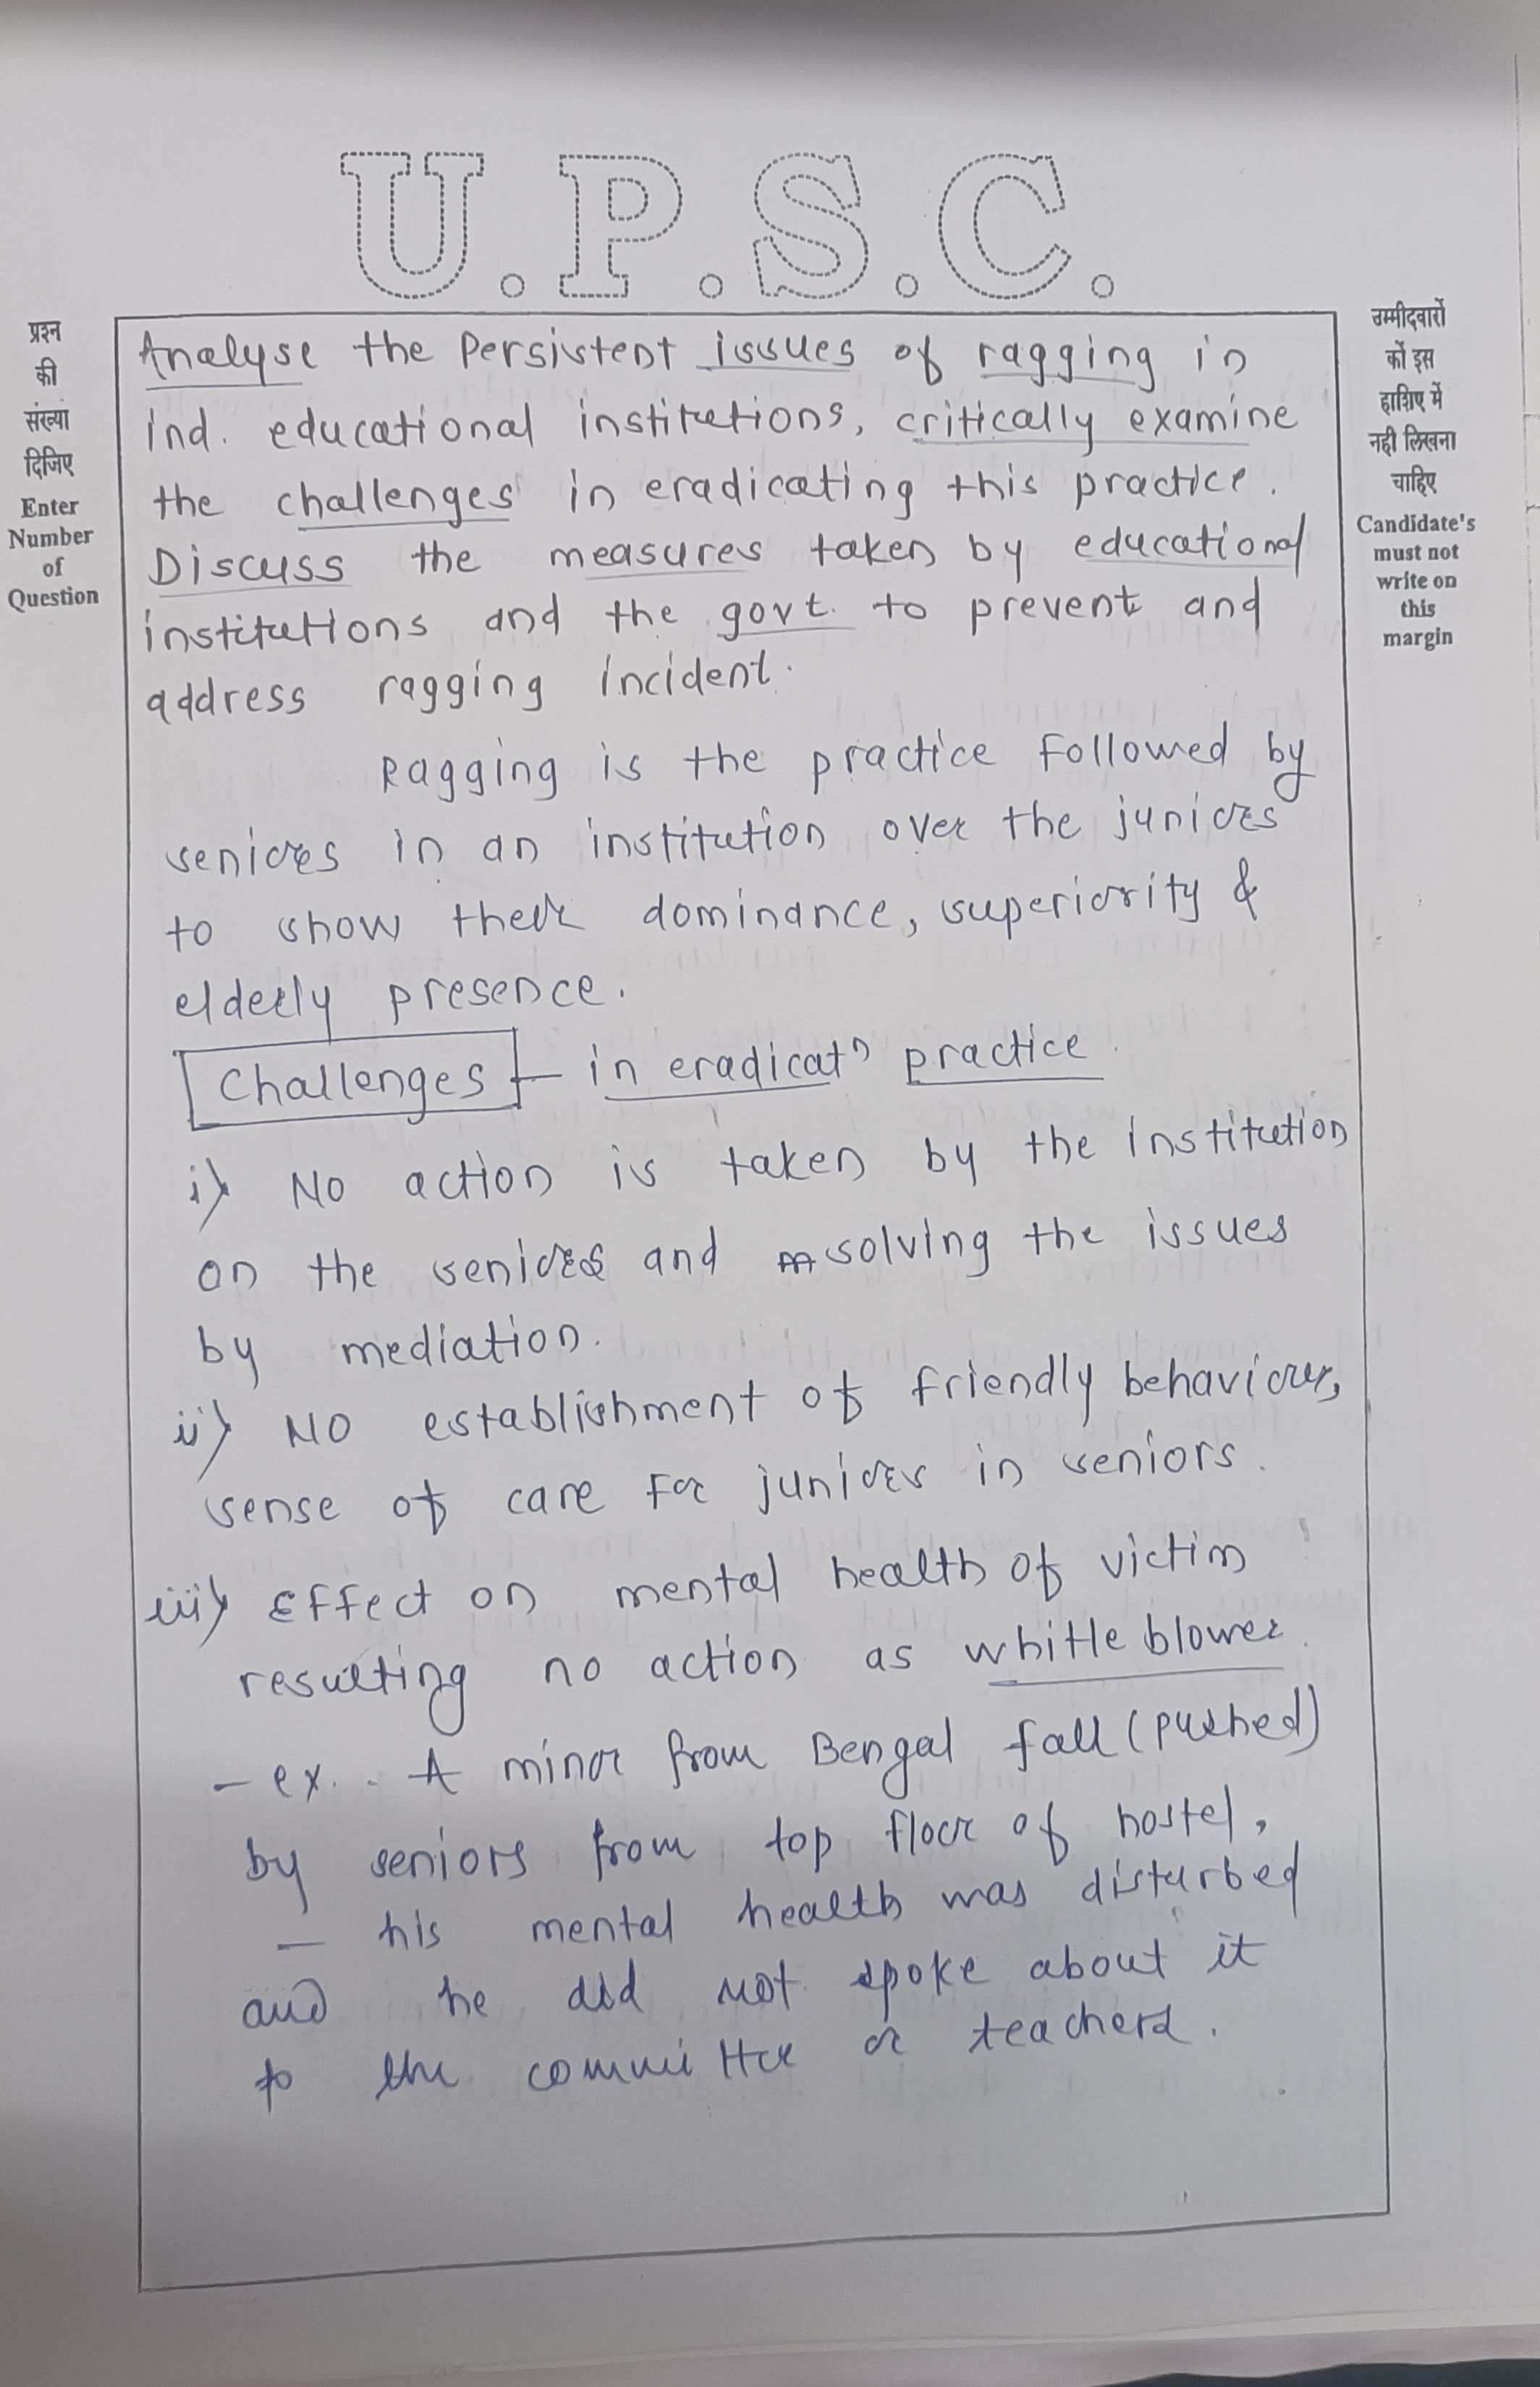 U.P.S.C.
प्रश्न
की
संख्या
दिजिए
Enter
Number
of
Question
उम्मीदवारों
कों इस
हाशिए में
नही लिखना
चाहिए
Candidate's
must not
write on
this
margin
Analyse the Persistent issues of ragging in
ind. educational institutions, critically examine
the challenges in eradicating this practice.
Discuss the measures taken by educational
institutions and the govt. to prevent and
address ragging incident.
Ragging is the practice followed by
seniors in an institution over the juniors
to show their dominance, superiority &
elderly presence.
Challenges - in eradicatn practice.
i) No action is taken by the institution
on the seniors and solving the issues
by mediation.
ii) No establishment of friendly behaviour,
sense of care for juniors in seniors.
iii) Effect on mental health of victim
resulting no action as whitle blower.
- ex. . A minor from Bengal fall (pushed)
by seniors from top floor of hostel,
- his mental health was disturbed
and he did not spoke about it
to the committee or teachers.